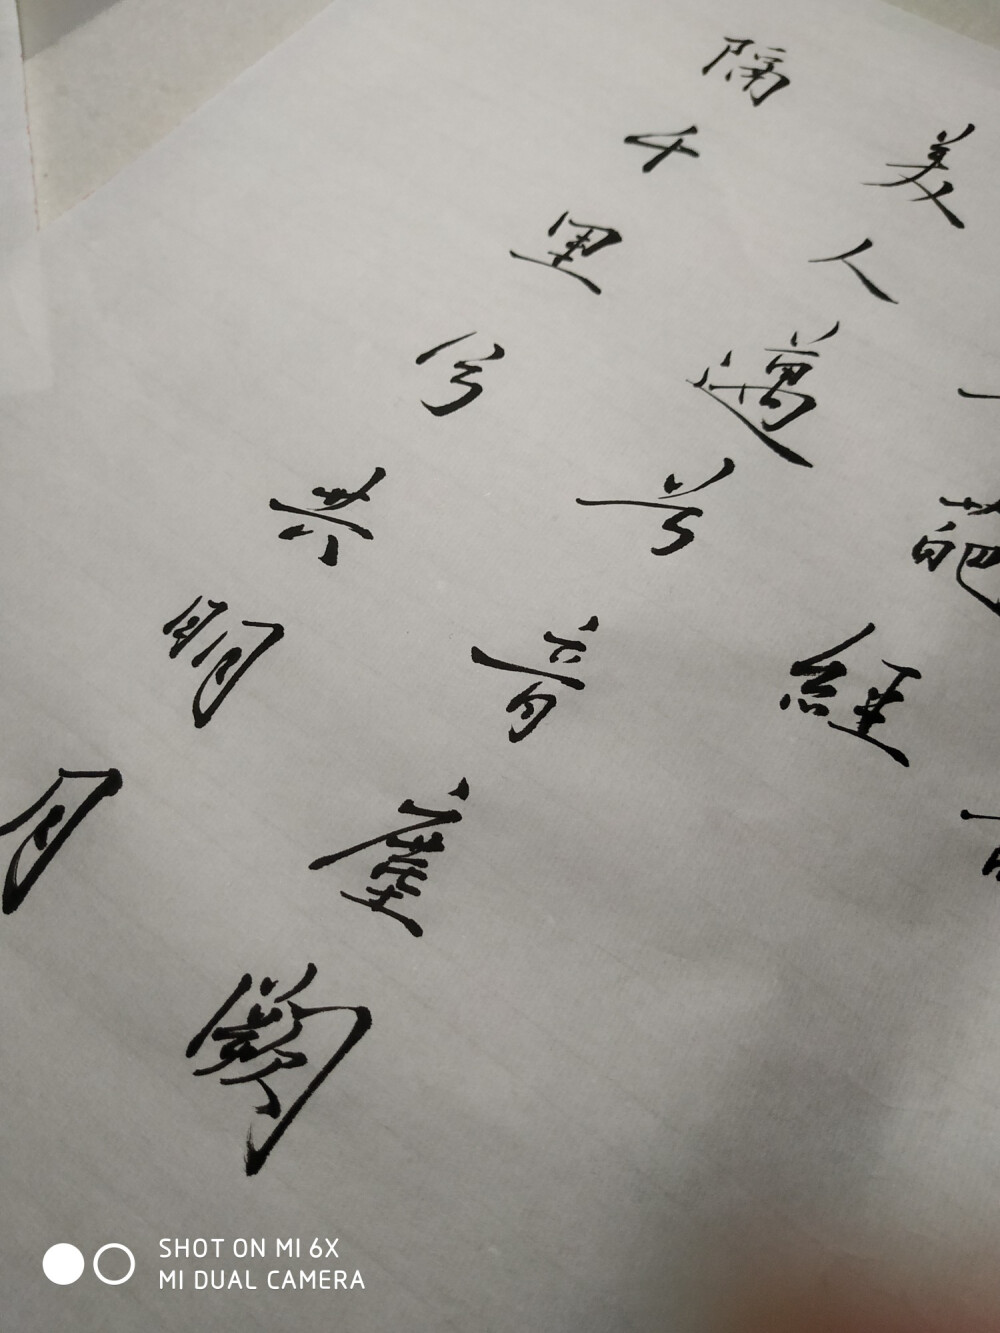 葩經
美人邁兮音塵闕
隔千里兮共明月
SHOT ON MI 6X
MI DUAL CAMERA